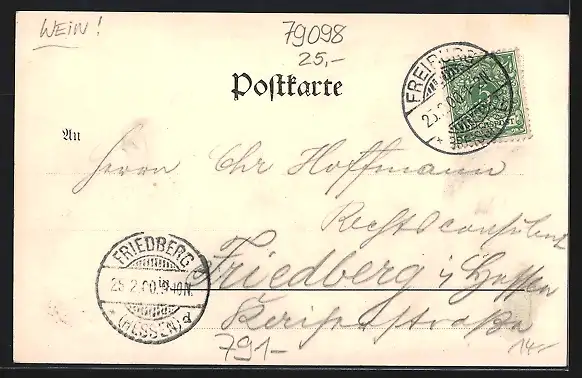 WEIN!
79098
25,-
Postkarte
FREIBURG
An
Herrn Chr Hoffmann
Rechtsconsulent
Friedberg i/Hessen
FRIEDBERG
25.2.00.
(HESSEN)
791-
14-